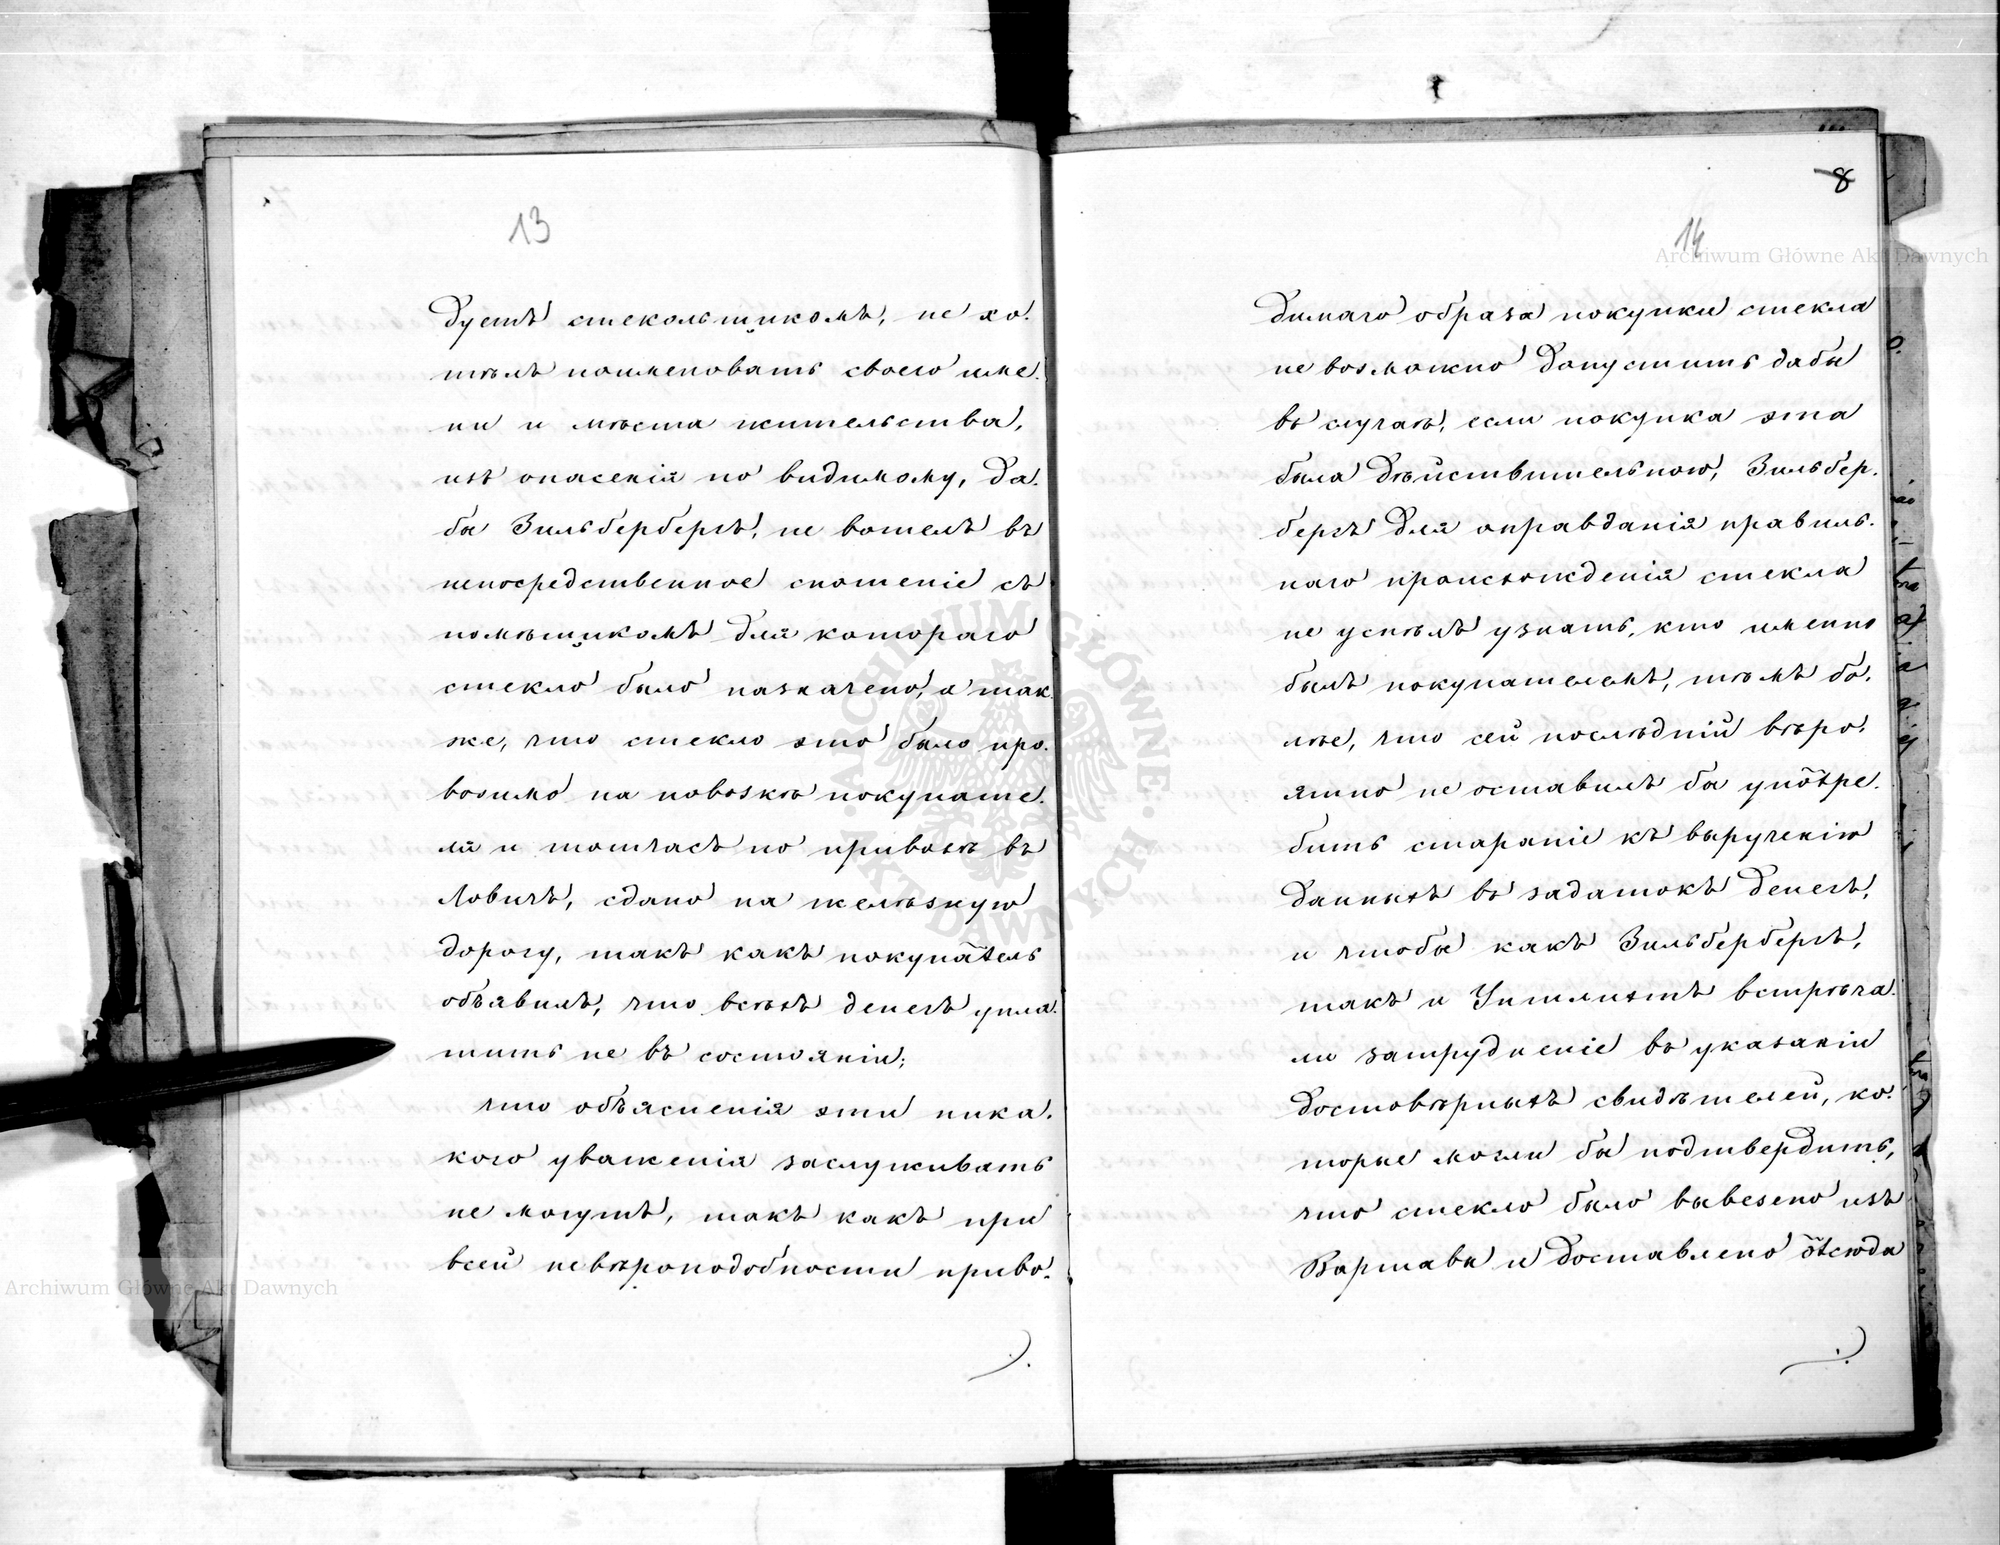 13
дучи стекольщикомъ, не хо.
тѣлъ поименовать своего име.
ни и мѣста жительства,
изъ опасенія по видимому, да.
бы Зильбербергъ, не вошелъ въ
непосредственное сношеніе съ
помѣщикомъ для котораго
стекло было назначено, а так.
же, что стекло это было про.
возимо на повозкѣ покупате.
ля и тотчасъ по привозѣ въ
Ловичъ, сдано на желѣзную
дорогу, такъ какъ покупатель
объявилъ, что всѣхъ денегъ упла.
тить не въ состояніи;
что объясненія эти ника.
кого уваженія заслуживать
не могутъ, такъ какъ при
всей невѣроподобности приво.
8
14
димаго образа покупки стекла
не возможно допустить дабы
въ случаѣ, если покупка эта
была дѣйствительною, Зильбер.
бергъ для оправданія правиль.
наго происхожденія стекла
не успѣлъ узнать, кто именно
былъ покупателемъ, тѣмъ бо.
лѣе, что сей послѣдній вѣро.
ятно не оставилъ бы употре.
бить стараніе къ вырученію
данныхъ въ задатокъ денегъ,
и чтобы какъ Зильбербергъ,
такъ и встрѣча.
ли затрудненіе въ указаніи
достовѣрныхъ свидѣтелей, ко.
торые могли бы подтвердить,
что стекло было вывезено изъ
Варшавы и доставлено отсюда
Archiwum Główne Akt Dawnych
Archiwum Główne Akt Dawnych
ARCHIWUM GŁÓWNE AKT DAWNYCH